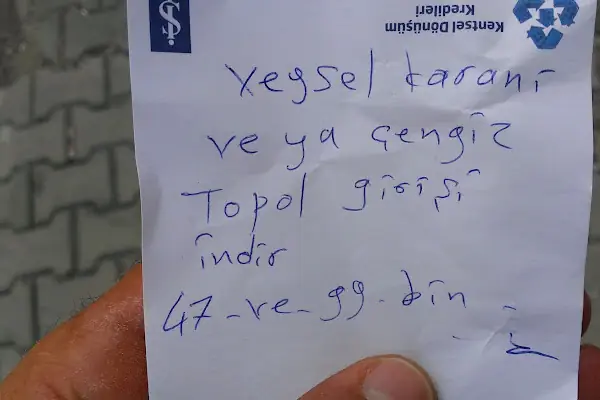 Kentsel Dönüşüm
Kredileri
Veysel karani
ve ya cengiz
Topol girişi
indir
47-ve-99-bin